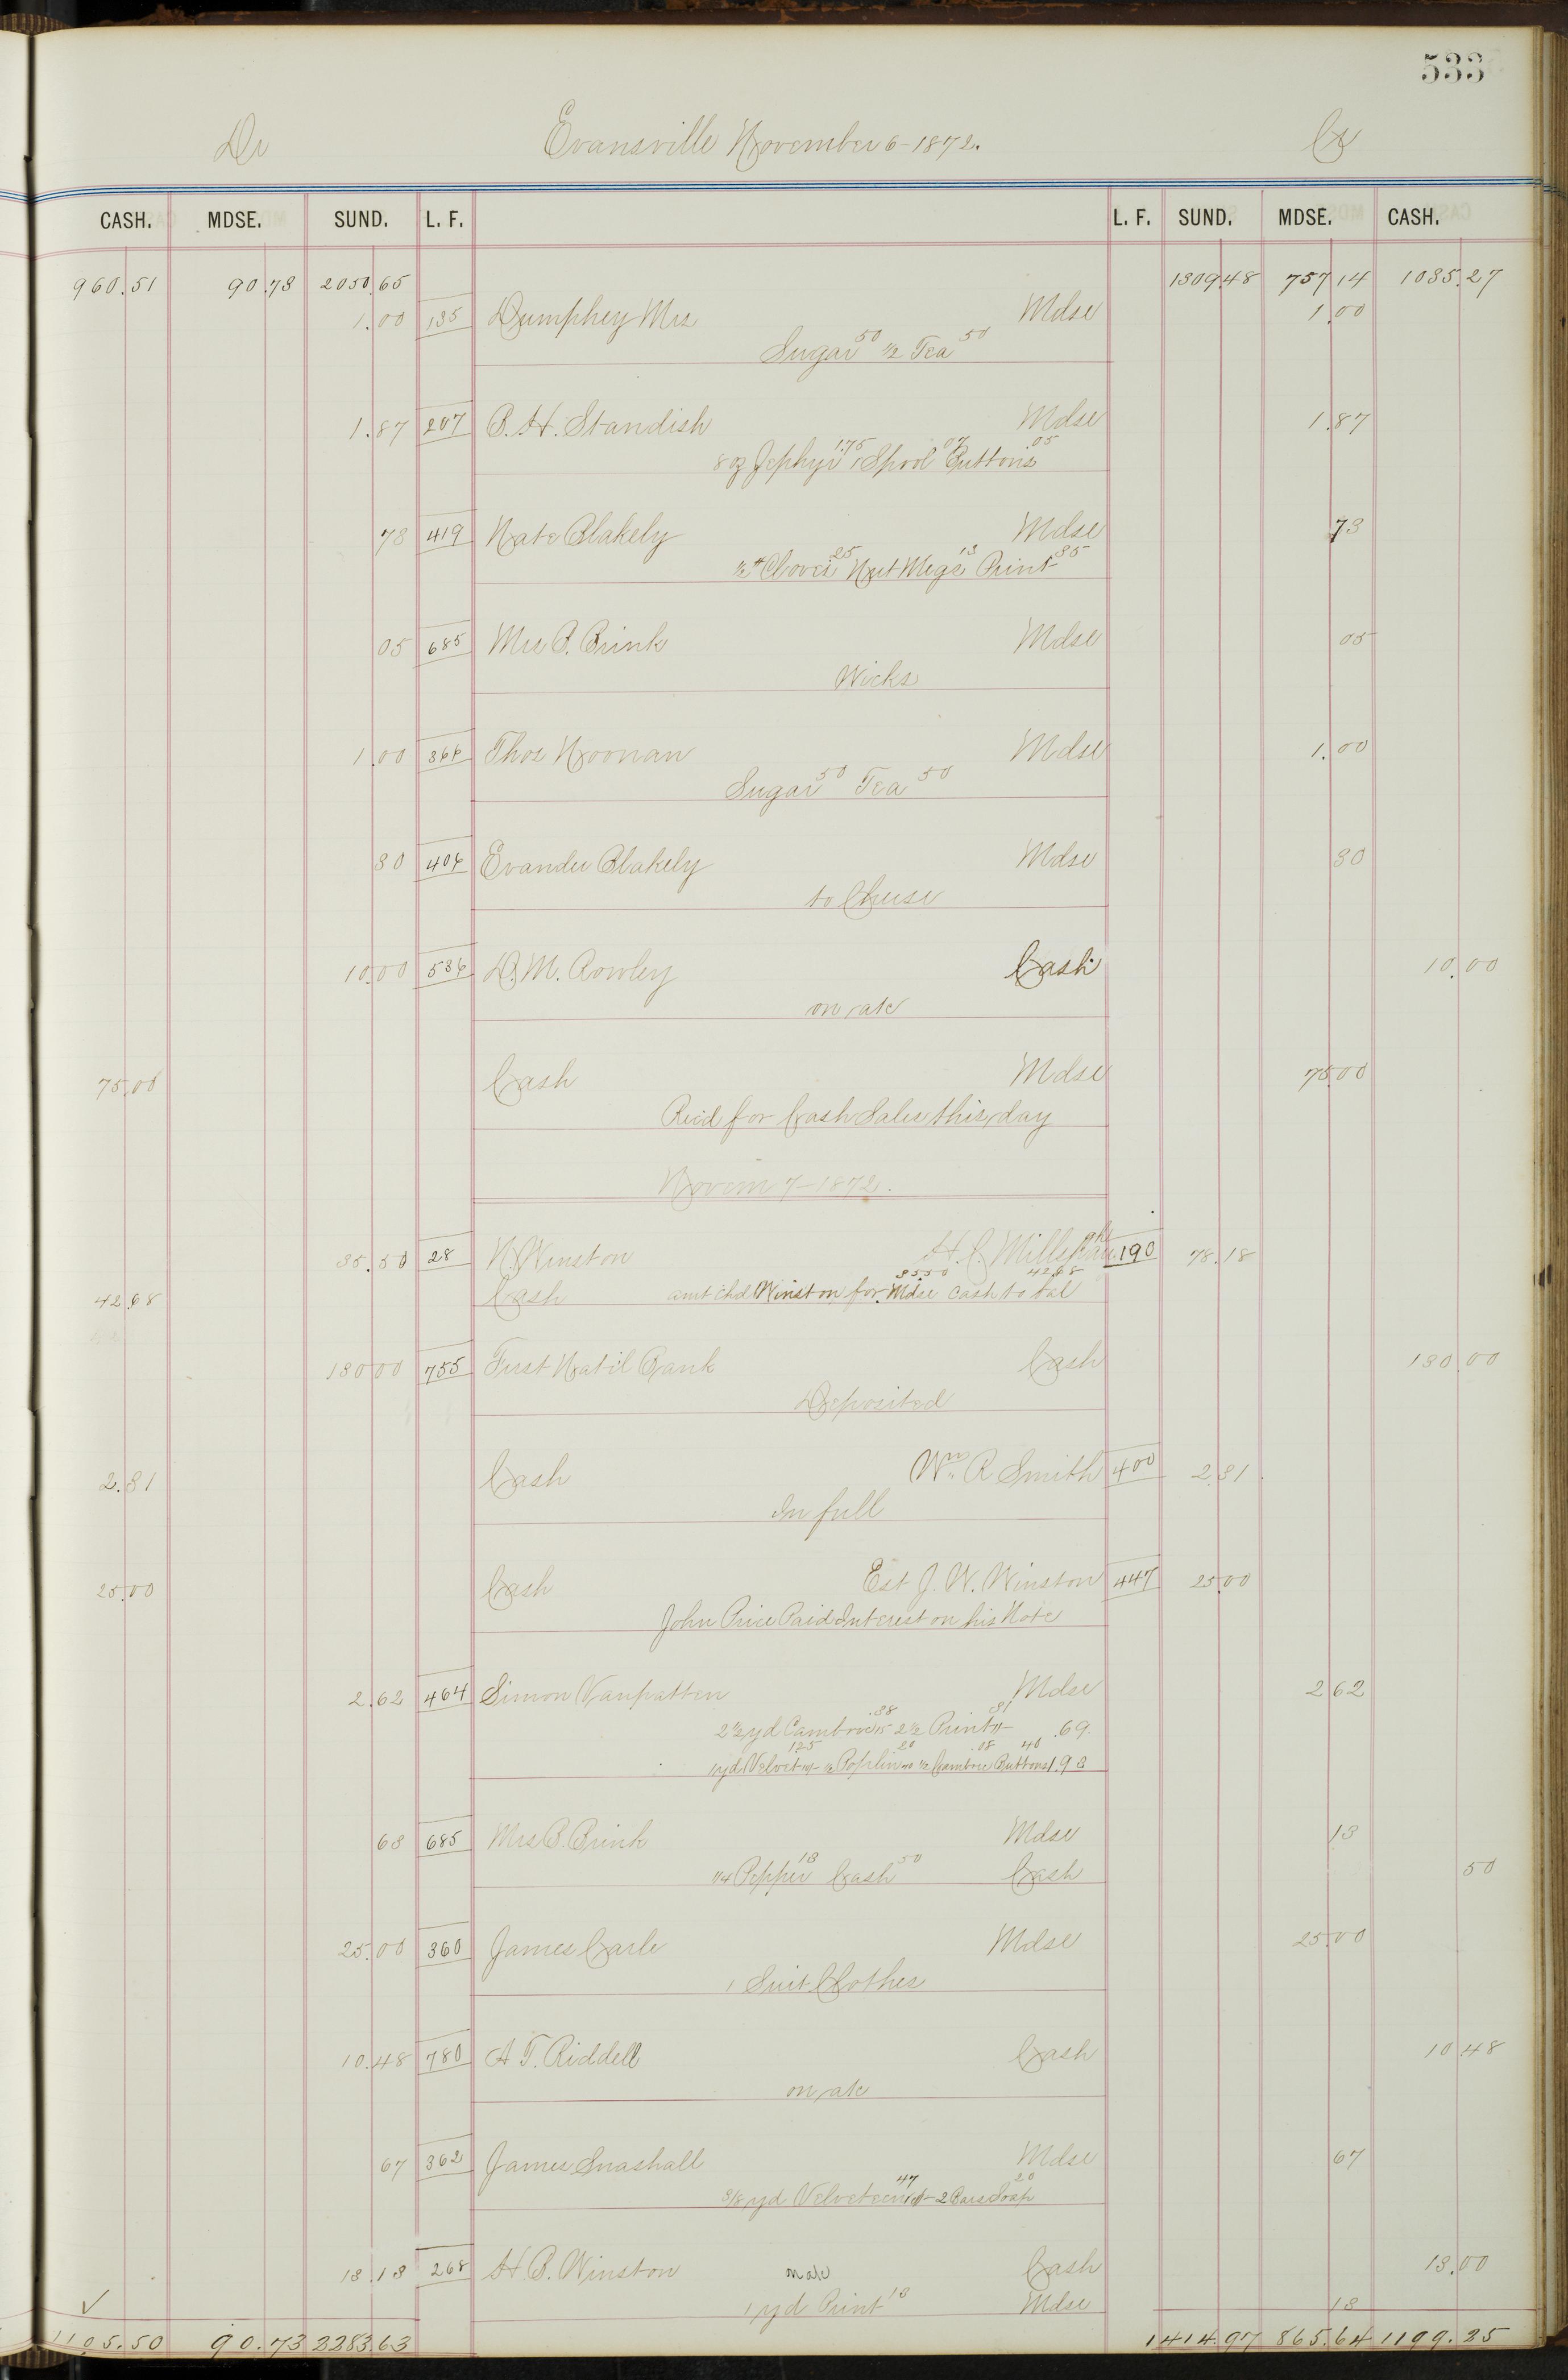 533
Dr Evansville November 6-1872. Cr
CASH. MDSE. SUND. L. F. L. F. SUND. MDSE. CASH.
960.51 90.73 2050.65 1309.48 757.14 1035.27
1.00 135 Dumphey Mrs Mdse 1.00
Sugar 50 1/2 Tea 50
1.87 207 B. H. Standish Mdse 1.87
8 oz Zephyr 1.75 1 Spool 07 Buttons .05
73 419 Nate Blakely Mdse 73
1/2 # Cloves 25 Nut Megs 13 Print 35
05 685 Mrs B. Brink Mdse 05
Wicks
1.00 366 Thos Noonan Mdse 1.00
Sugar 50 Tea 50
30 404 Evander Blakely Mdse 30
to Cheese
10.00 536 D. M. Rowley Cash 10.00
on a/c
75.00 Cash Mdse 75.00
Rec'd for Cash Sales this day
Novem 7-1872.
35.50 28 N. Winston H. C. Millspaugh 190 78.18
35.50 42.68
42.68 Cash amt chd Winston for Mdse cash to bal
130.00 755 First Nat'l Bank Cash 130.00
Deposited
2.31 Cash Wm R Smith 400 2.31
In full
25.00 Cash Est J. W. Winston 447 25.00
John Price Paid Interest on his Note
2.62 464 Simon Vanpatten Mdse 2.62
2 1/2 yd Cambric 15 .38 2 1/2 Print 31 .69.
1 yd Velvet 1.25 1/2 Poplin 40 20 1/2 Cambric .08 Buttons 40 1.93
63 685 Mrs B. Brink Mdse 13
1/4 Pepper 13 Cash 50 Cash 50
25.00 360 James Carle Mdse 25.00
1 Suit Clothes
10.48 780 A T. Riddell Cash 10.48
on a/c
67 362 James Snashall Mdse 67
3/8 yd Velveteen 47 2 Bars Soap 20
13.13 268 H. B. Winston on a/c Cash 13.00
1 yd Print 13 Mdse 13
1105.50 90.73 2283.63 1414.97 865.64 1199.25